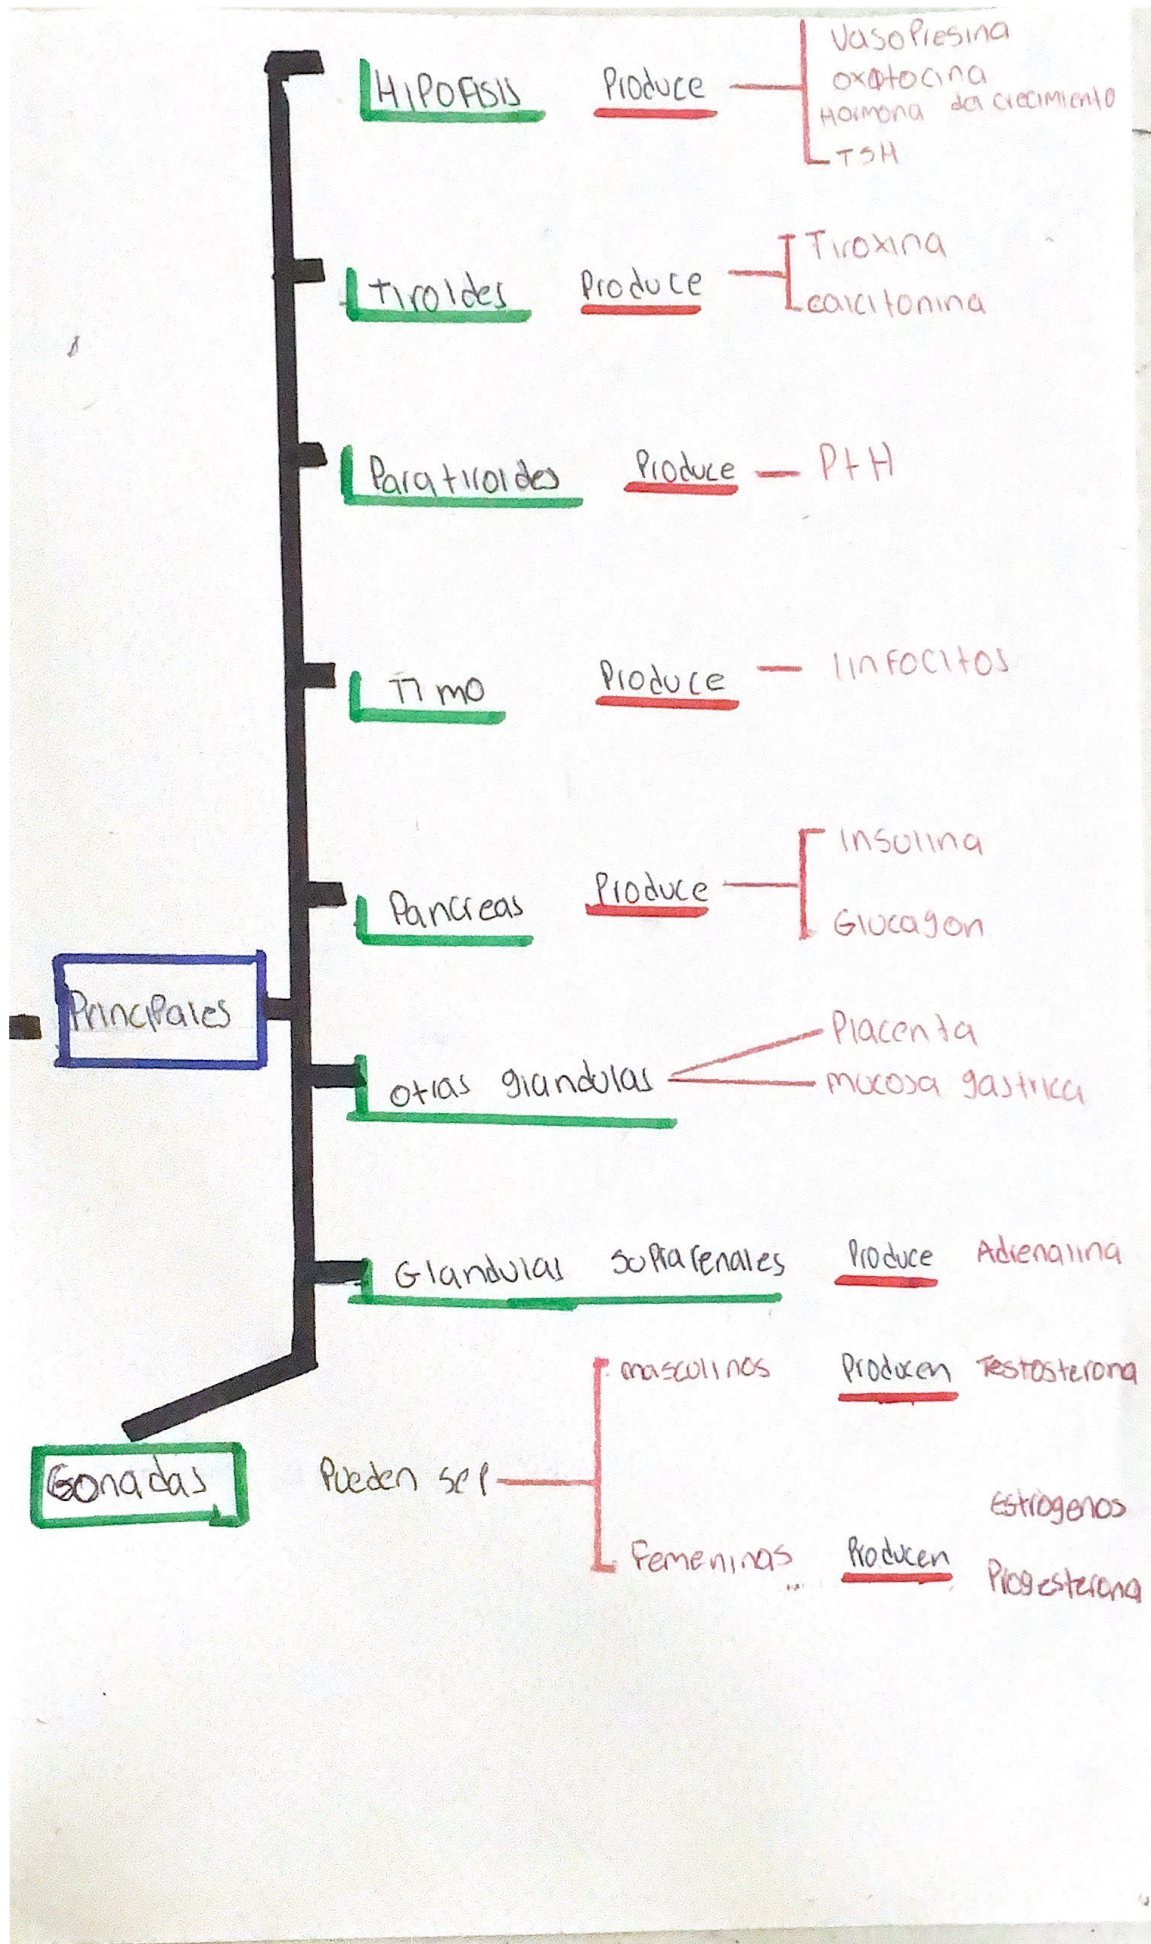 HIPOFISIS Produce
VasoPresina
oxotocina
Hormona del crecimiento
TSH
Tiroides Produce
Tiroxina
calcitonina
Paratiroides Produce PtH
Timo Produce linfocitos
Pancreas Produce
Insulina
Glucagon
PrinciPales
otras glandulas
Placenta
mucosa gastrica
Glandulas suprarenales Produce Adrenalina
Gonadas Pueden ser
masculinos Producen Testosterona
Femeninas Producen
Estrogenos
Progesterona